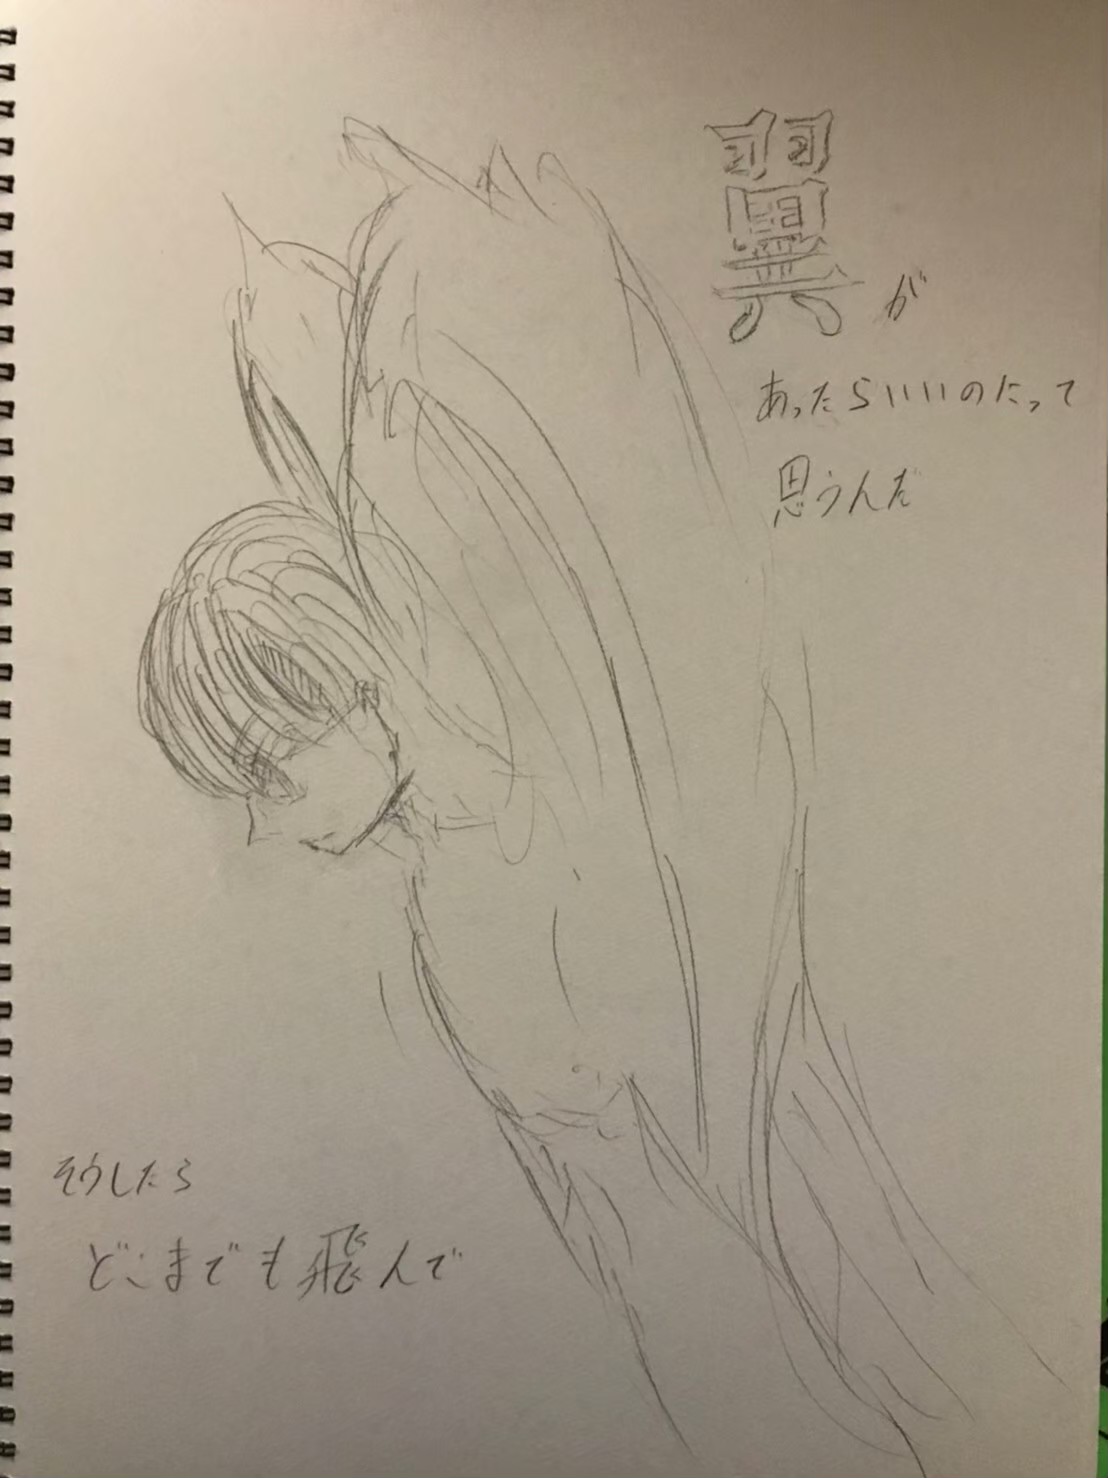 翼が
あったらいいのにって
思うんだ
そうしたら
どこまでも飛んで